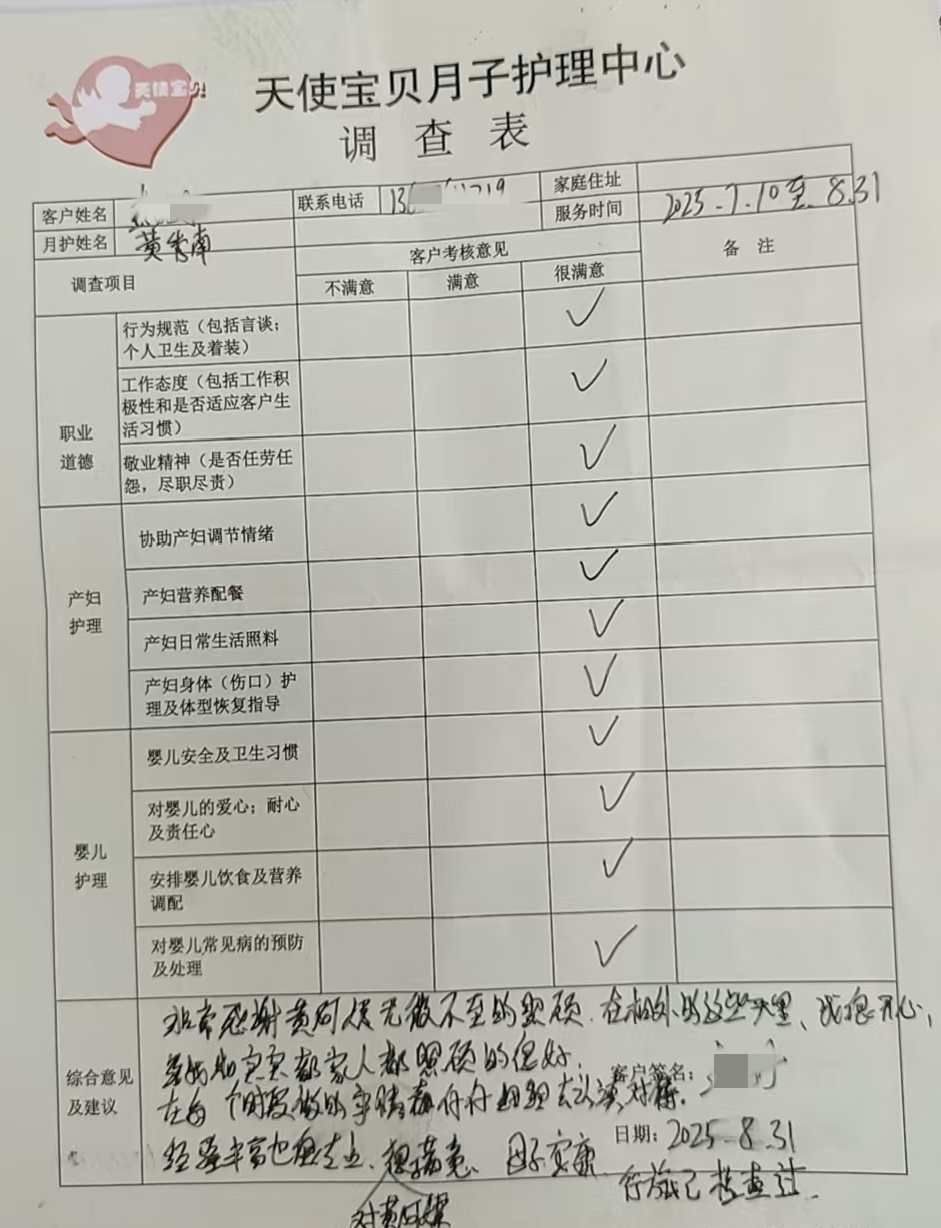 天使宝贝
天使宝贝月子护理中心
调查表
客户姓名 联系电话 家庭住址
月护姓名 黄秀南 服务时间 2025.7.10至 8.31
调查项目 客户考核意见 备注
不满意 满意 很满意
职业道德
行为规范（包括言谈；
个人卫生及着装）
工作态度（包括工作积
极性和是否适应客户生
活习惯）
敬业精神（是否任劳任
怨，尽职尽责）
产妇护理
协助产妇调节情绪
产妇营养配餐
产妇日常生活照料
产妇身体（伤口）护
理及体型恢复指导
婴儿护理
婴儿安全及卫生习惯
对婴儿的爱心；耐心
及责任心
安排婴儿饮食及营养
调配
对婴儿常见病的预防
及处理
综合意见及建议
非常感谢黄阿姨无微不至的照顾.在相处的这些天里、我很开心,
宝宝都家人都照顾的很好.
客户签名：
在每个时段做的事情都仔仔细细去认真对待.
经验丰富也很专业、很满意、母子安康
日期：2025.8.31
对黄阿姨